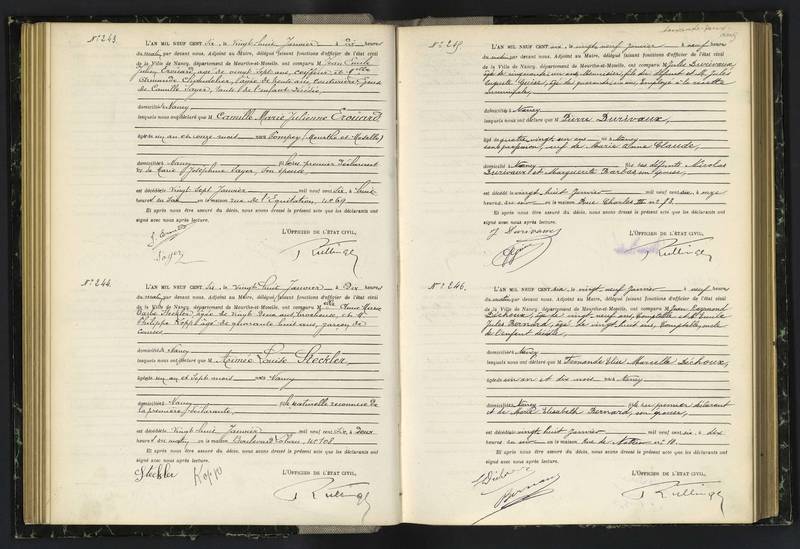 N° 243.
L'AN MIL NEUF CENT Six, le Vingt huit Janvier à Dix heures
du matin, par devant nous, Adjoint au Maire, délégué faisant fonctions d'officier de l'état civil
de la Ville de Nancy, département de Meurthe-et-Moselle, ont comparu M. Jean Emile
Julien Erouard, âgé de vingt sept ans, coiffeur, et
ans, couturière
de Camille Sayer, tante de l'enfant décédée,
domiciliés à Nancy
lesquels nous ont déclaré que M Camille Marie Julienne Erouard
âgée de un an et onze mois née à Pompey (Meurthe et Moselle)
domiciliée à Nancy, fille du premier déclarant
et de Marie Joséphine Sayer, son épouse,
est décédée le Vingt Sept Janvier mil neuf cent Six, à huit
heures du soir en la maison rue de l'Equitation, N° 69
Et après nous être assuré du décès, nous avons dressé le présent acte que les déclarants ont
signé avec nous après lecture.
L'OFFICIER DE L'ÉTAT CIVIL,
N° 244.
L'AN MIL NEUF CENT Six, le Vingt huit Janvier à Dix heures
du matin, par devant nous, Adjoint au Maire, délégué faisant fonctions d'officier de l'état civil
de la Ville de Nancy, département de Meurthe-et-Moselle, ont comparu Melle Anne Marie
Steckler, âgée de vingt deux ans, brodeuse, et M.
Philippe Kopp âgé de quarante huit ans, garçon de
courses
domiciliés à Nancy
lesquels nous ont déclaré que M Aimée Louise Steckler,
âgée de un an et Sept mois née à Nancy
domiciliée à Nancy fille naturelle reconnue de
la première déclarante,
est décédée le Vingt huit Janvier mil neuf cent Six, à Deux
heures du matin en la maison Boulevard Lobau, N° 108
Et après nous être assuré du décès, nous avons dressé le présent acte que les déclarants ont
signé avec nous après lecture.
Steckler Kopp
L'OFFICIER DE L'ÉTAT CIVIL,
N° 245.
L'AN MIL NEUF CENT six, le vingt neuf janvier à neuf heures
du matin, par devant nous, Adjoint au Maire, délégué faisant fonctions d'officier de l'état civil
de la Ville de Nancy, département de Meurthe-et-Moselle, ont comparu M. Jules Durivaux,
âgé de cinquante un ans, fils du défunt et M. Jules
Auguste âgé de quarante ans, Employé à la recette
municipale,
domiciliés à Nancy
lesquels nous ont déclaré que M Pierre Durivaux,
âgé de quatre vingt un ans né à Nancy
sans profession, veuf de Marie Anne Claude,
domicilié à Nancy fils des défunts Nicolas
Durivaux et Marguerite Barbe son épouse,
est décédé le vingt huit janvier mil neuf cent six, à onze
heures du soir en la maison Rue Charles III n° 83.
Et après nous être assuré du décès, nous avons dressé le présent acte que les déclarants ont
signé avec nous après lecture.
J Durivaux
L'OFFICIER DE L'ÉTAT CIVIL,
N° 246.
L'AN MIL NEUF CENT six, le vingt neuf janvier à neuf heures
du matin, par devant nous, Adjoint au Maire, délégué faisant fonctions d'officier de l'état civil
de la Ville de Nancy, département de Meurthe-et-Moselle, ont comparu M. Jean Raymond
Dichoux, âgé de vingt neuf ans, Comptable et M. Emile
Jules Bernard, âgé de vingt huit ans, Comptable, oncle
de l'enfant décédée,
domiciliés à Nancy
lesquels nous ont déclaré que M Fernande Elise Marcelle Dichoux,
âgée de un an et dix mois née à Nancy
domiciliée à Nancy fille du premier déclarant
et de Marie Elisabeth Bernard, son épouse,
est décédée le vingt huit janvier mil neuf cent six, à dix
heures du soir en la maison Rue de n° 10.
Et après nous être assuré du décès, nous avons dressé le présent acte que les déclarants ont
signé avec nous après lecture.
Dichoux
Bernard
L'OFFICIER DE L'ÉTAT CIVIL,